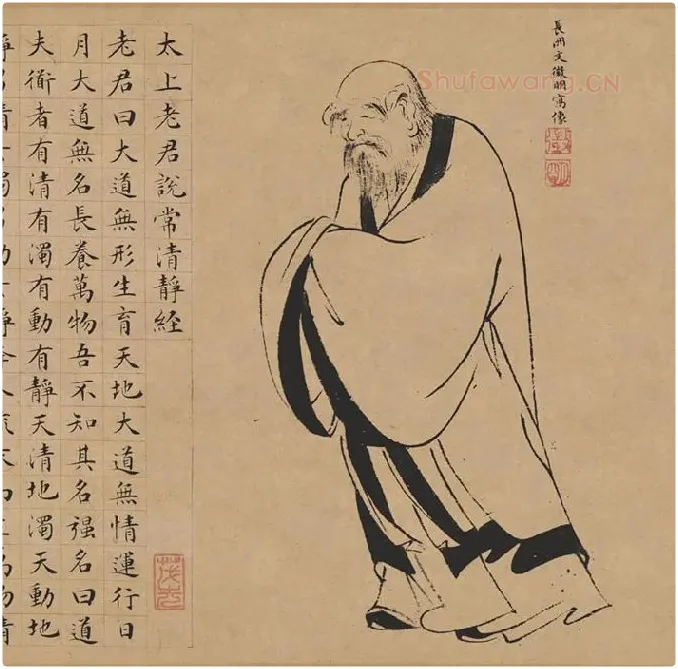 長洲文徵明寫像
Shufawang.CN
太上老君說常清靜經
老君曰大道無形生育天地大道無情運行日
月大道無名長養萬物吾不知其名強名曰道
夫衜者有清有濁有動有靜天清地濁天動地
茂苑